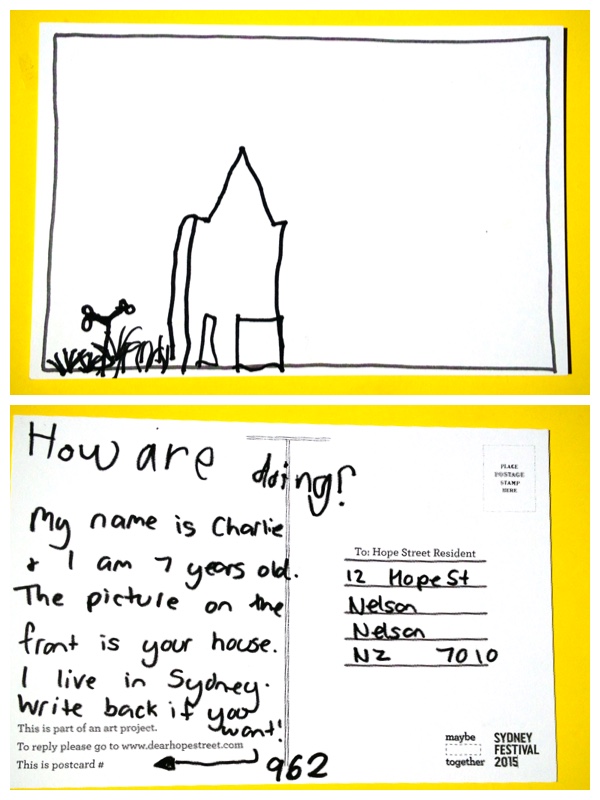 How are doing?
My name is Charlie
& I am 7 years old.
The picture on the
front is your house.
I live in Sydney.
Write back if you
want!
This is part of an art project.
To reply please go to www.dearhopestreet.com
This is postcard #
962
PLACE
POSTAGE
STAMP
HERE
To: Hope Street Resident
12 Hope St
Nelson
Nelson
NZ 7010
maybe
together
SYDNEY
FESTIVAL
2015